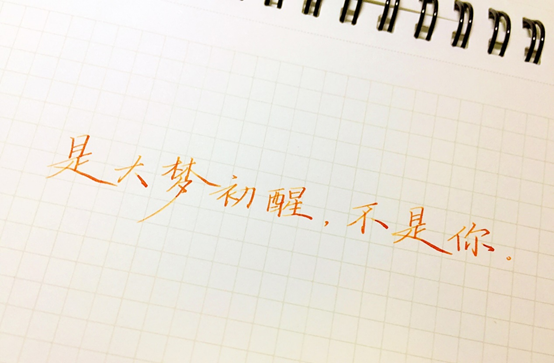 是大梦初醒，不是你。